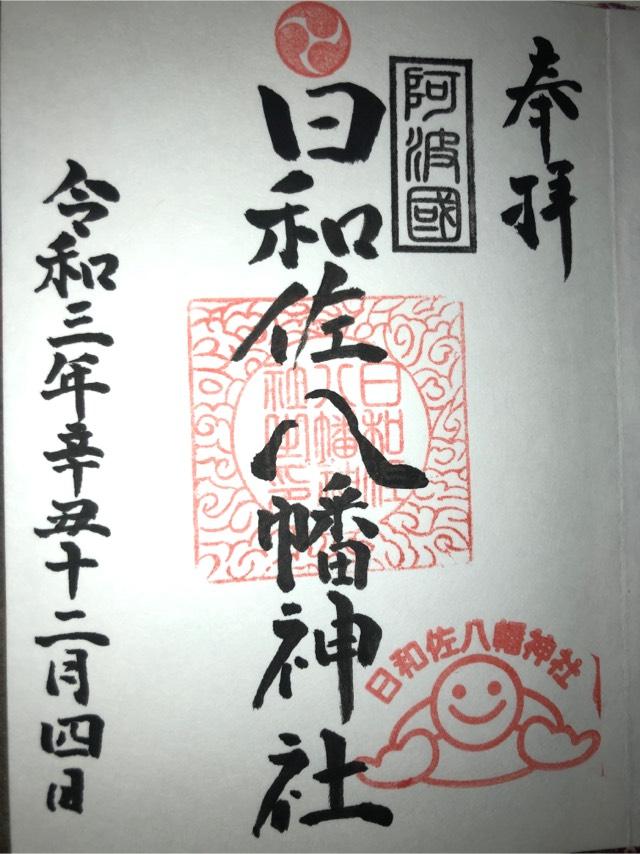 奉拝
阿波國
日和佐八幡神社
日和佐
八幡神
社
日和佐八幡神社
令和三年辛丑十二月四日